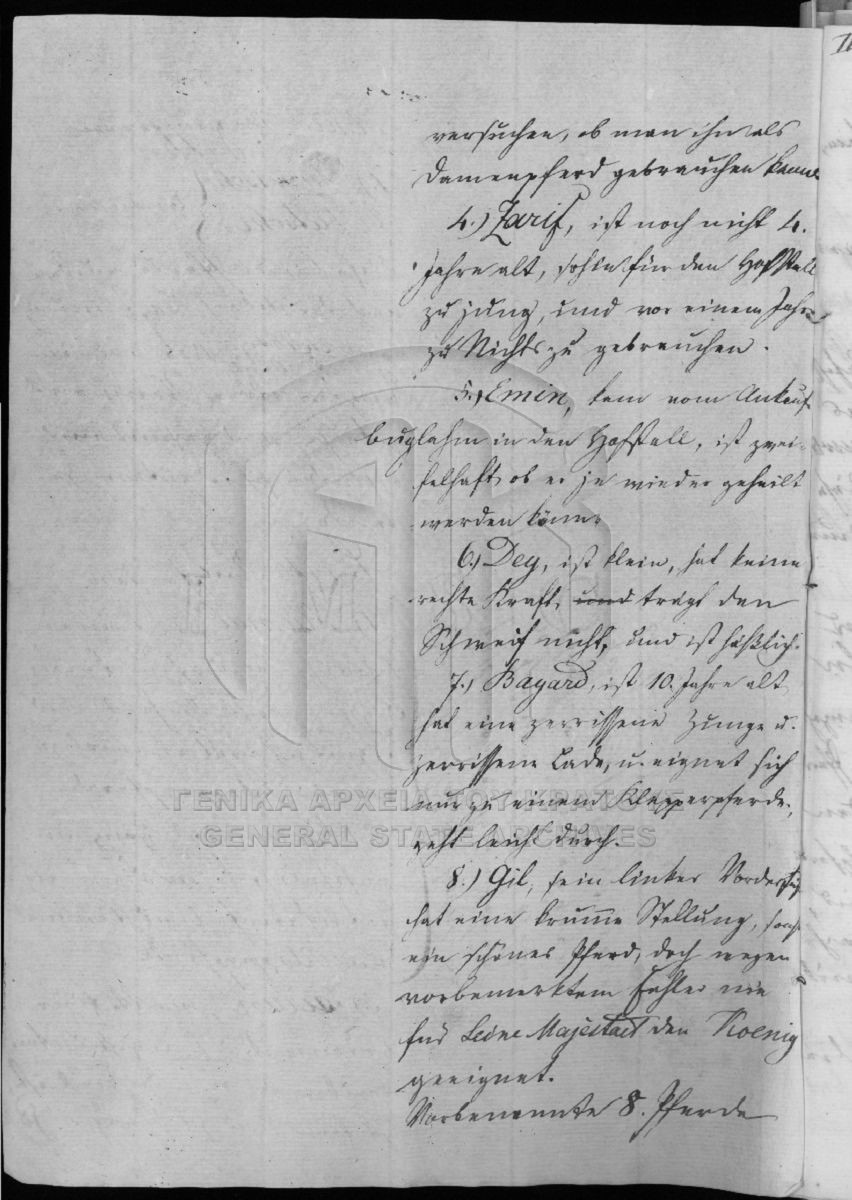 versuchen, ob man ihn als
Damenpferd gebrauchen könne
4.) Zarif, ist noch nicht 4.
Jahre alt, für den Hofstall
zu jung, und vor einem Jahre
zu Nichts zu gebrauchen.
5.) Emin, kam vom Ankauf
buglahm in den Hofstall, ist zwei-
felhaft ob er je wieder geheilt
werden könne
6.) Dey, ist klein, hat keine
rechte Kraft, und trägt den
Schweif nicht, und ist häßlich.
7.) Bayard, ist 10. Jahre alt
hat eine zerrissene Zunge u.
zerrissene Lade, u. eignet sich
nur zu einem Klepperpferde,
geht leicht durch.
8.) Gil, sein linker Vorderfuß
hat eine krumme Stellung, sonst
ein schönes Pferd, doch wegen
vorbemerktem Fehler nie
für Seine Majestaet den Koenig
geeignet.
Vorbenannte 8. Pferde
ΓΕΝΙΚΑ ΑΡΧΕΙΑ ΤΟΥ ΚΡΑΤΟΥΣ
GENERAL STATE ARCHIVES